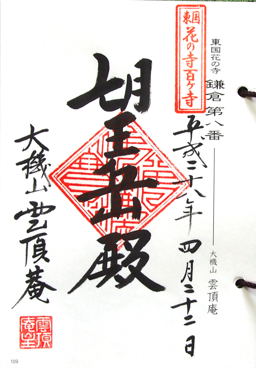 東国花の寺 鎌倉第八番 大機山 雲頂庵
東国
花の寺百ヶ寺
平成二十八年四月二十二日
殿
大機山雲頂庵
109